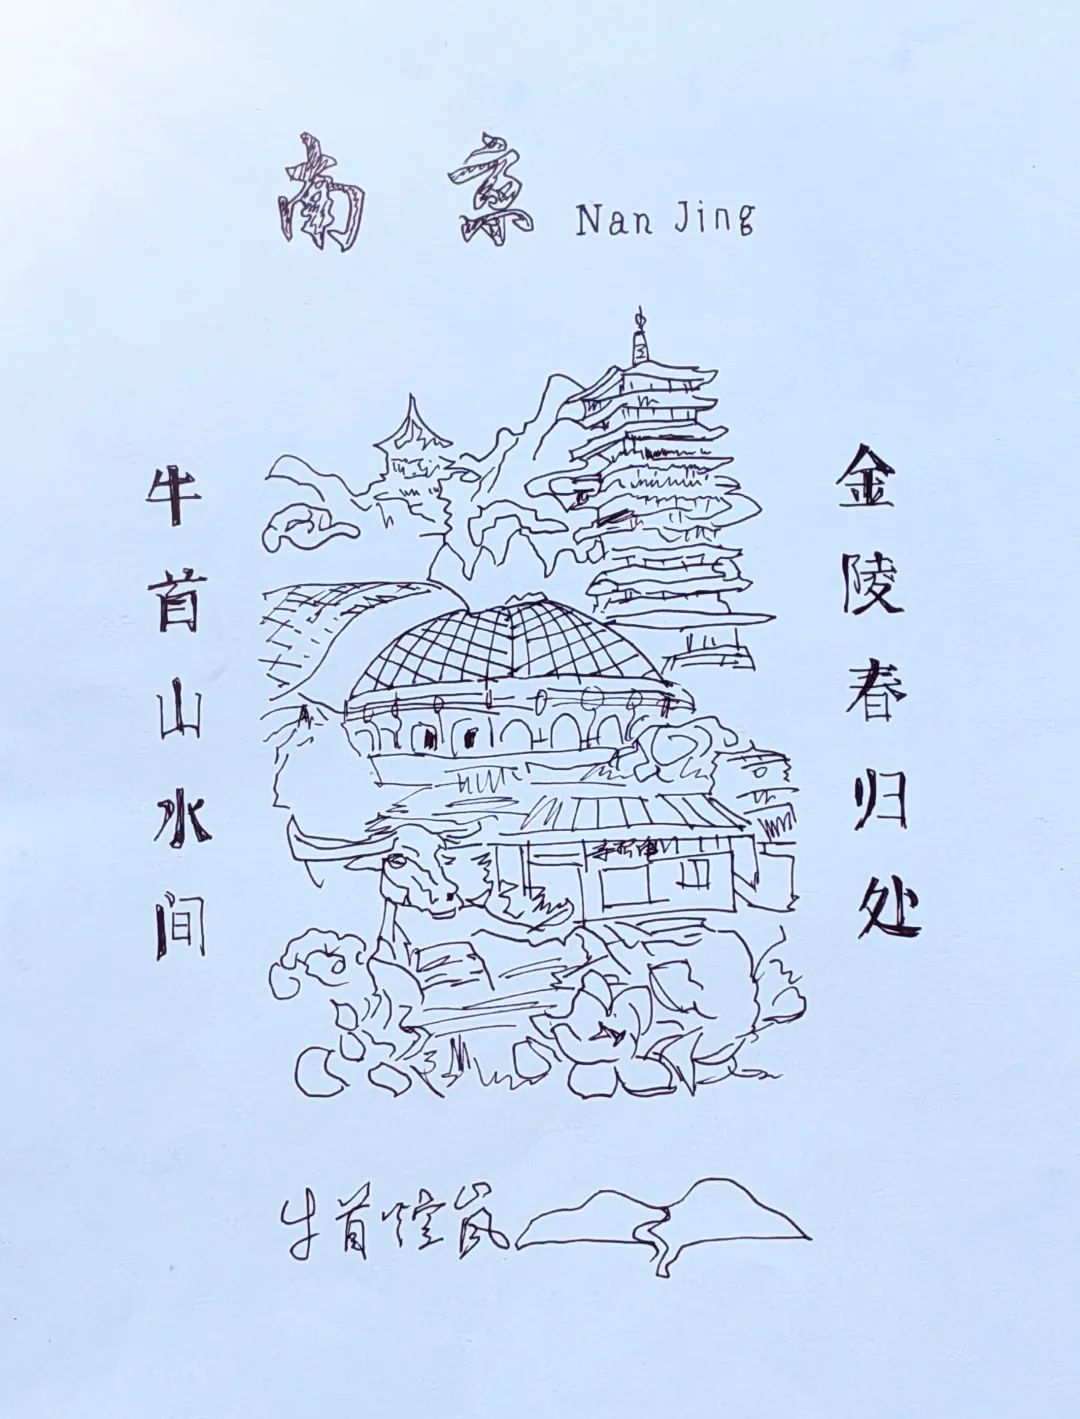 南京 Nan Jing
牛首山水间
金陵春归处
牛首烟岚